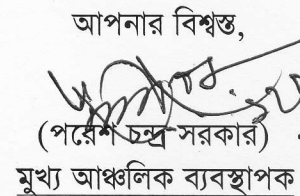 আপনার বিশ্বস্ত,
(পরেশ চন্দ্র সরকার)
মুখ্য আঞ্চলিক ব্যবস্থাপক